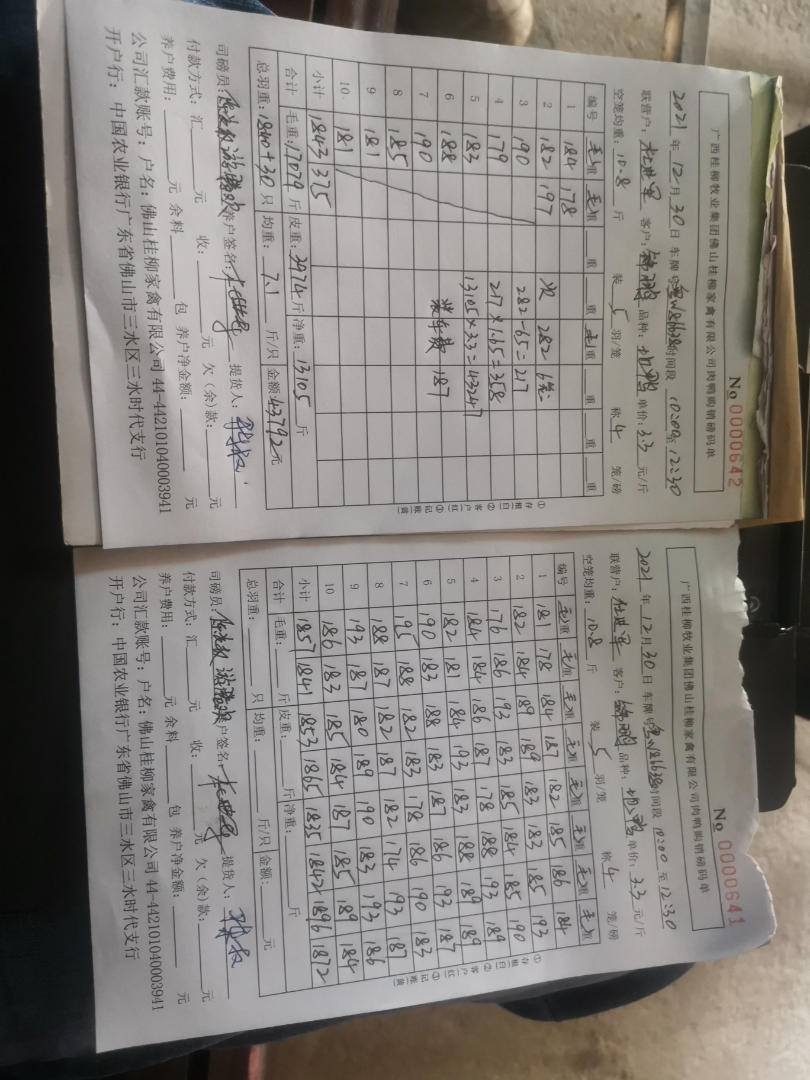 No 0000642
广西桂柳牧业集团佛山桂柳家禽有限公司肉鸭购销磅码单
2021 年 12 月 30 日 车牌号 时间段 10:00 至 12:30
联营户: 杜进军 客户: 品种: 单价: 3.3 元/斤
空笼均重: 10.8 斤 装 5 羽/笼 称 4 笼/磅
编号 毛重 毛重 重 重 毛重 重 重 重
1 184 178
2 182 197 次 282
3 190 282-65=217
4 179 217×1.65=358
5 183 13105×3.3=43247
6 188 装车费 187
7 190
8 185
9 181
10 181
小计 1843 375
合计 毛重: 17079 斤 皮重: 3974 斤 净重: 13105 斤
总羽重: 1840+30 只 均重: 7.1 斤/只 金额: 43792 元
司磅员: 养户签名: 提货人:
付款方式: 汇 元 收: 元 欠(余)款: 元
养户费用: 元 余料 包 养户净金额: 元
公司汇款账号: 户名: 佛山桂柳家禽有限公司 44-442101040003941
开户行: 中国农业银行广东省佛山市三水区三水时代支行
①存根(白) ②客户(红) ③记账(黄)
No 0000641
广西桂柳牧业集团佛山桂柳家禽有限公司肉鸭购销磅码单
2021 年 12 月 30 日 车牌号 时间段 10:00 至 12:30
联营户: 杜进军 客户: 品种: 单价: 3.3 元/斤
空笼均重: 10.8 斤 装 5 羽/笼 称 4 笼/磅
编号 毛重 毛重 毛重 毛重 毛重 毛重 毛重 毛重
1 181 178 184 187 182 185 186 184
2 182 184 189 189 183 183 185 193
3 176 186 193 183 185 184 185 190
4 184 184 186 187 178 188 193 189
5 182 181 184 193 183 188 189 189
6 190 183 188 183 187 186 193 187
7 195 188 182 183 178 186 190 183
8 188 187 182 187 182 174 193 187
9 193 187 180 189 190 183 193 186
10 186 183 185 184 187 185 189 184
小计 1857 1841 1853 1865 1835 1842 1896 1872
合计 毛重: 斤 皮重: 斤 净重: 斤
总羽重: 只 均重: 斤/只 金额: 元
司磅员: 养户签名: 提货人:
付款方式: 汇 元 收: 元 欠(余)款: 元
养户费用: 元 余料 包 养户净金额: 元
公司汇款账号: 户名: 佛山桂柳家禽有限公司 44-442101040003941
开户行: 中国农业银行广东省佛山市三水区三水时代支行
①存根(白) ②客户(红) ③记账(黄)